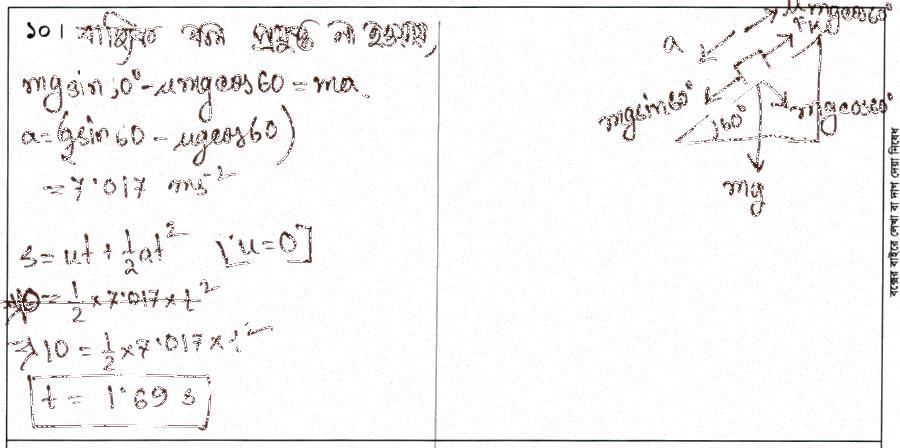 ১০। বাহ্যিক বল প্রযুক্ত না হওয়ায়,
mg sin 60° - μmgcos60 = ma
a = (g sin 60 - μgcos60)
= 7.017 ms⁻²
s = ut + ½at² [u=0]
10 = ½ × 7.017 × t²
⇒ 10 = ½ × 7.017 × t²
t = 1.69 s
μmgcos60°
fk
a
mgsin60°
60°
mgcos60°
mg
বক্সের বাইরে লেখা বা দাগ দেয়া নিষেধ